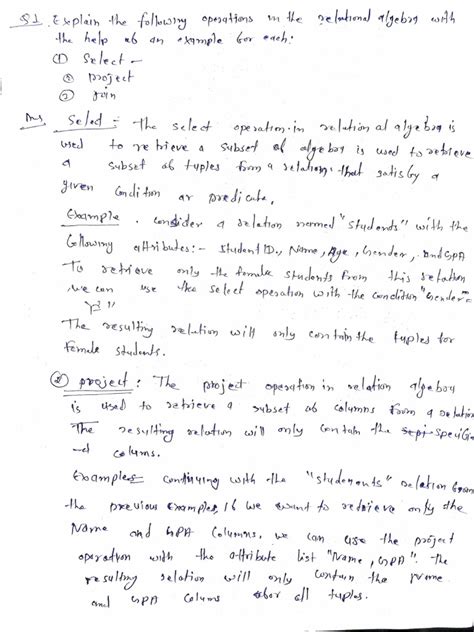 Q1. Explain the following operations in the relational algebra with
the help ob an example for each:
① Select -
② Project
② Join
Ans. Select :- The select operation in relational algebra is
used to retrieve a subset of algebra is used to retrieve
a subset ob tuples from a relation that satisby a
given condition or predicate.
Example. consider a relation named "students" with the
following attributes:- Student ID, Name, Age, Gender, and GPA
To retrieve only the female students from this relation
we can use the select operation with the condition "Gender=
"
The resulting relation will only contain the tuples for
female students.
② project : The project operation in relation algebra
is used to retrieve a subset ob columns from a relation
The resulting relation will only contain the specifie
-d colums.
Example continuing with the "students" relation from
the previous example, if we want to retrieve only the
Name and GPA columns. we can use the project
operation with the attribute list "Name, GPA". the
resulting relation will only contain the Name
and GPA colums for all tuples.